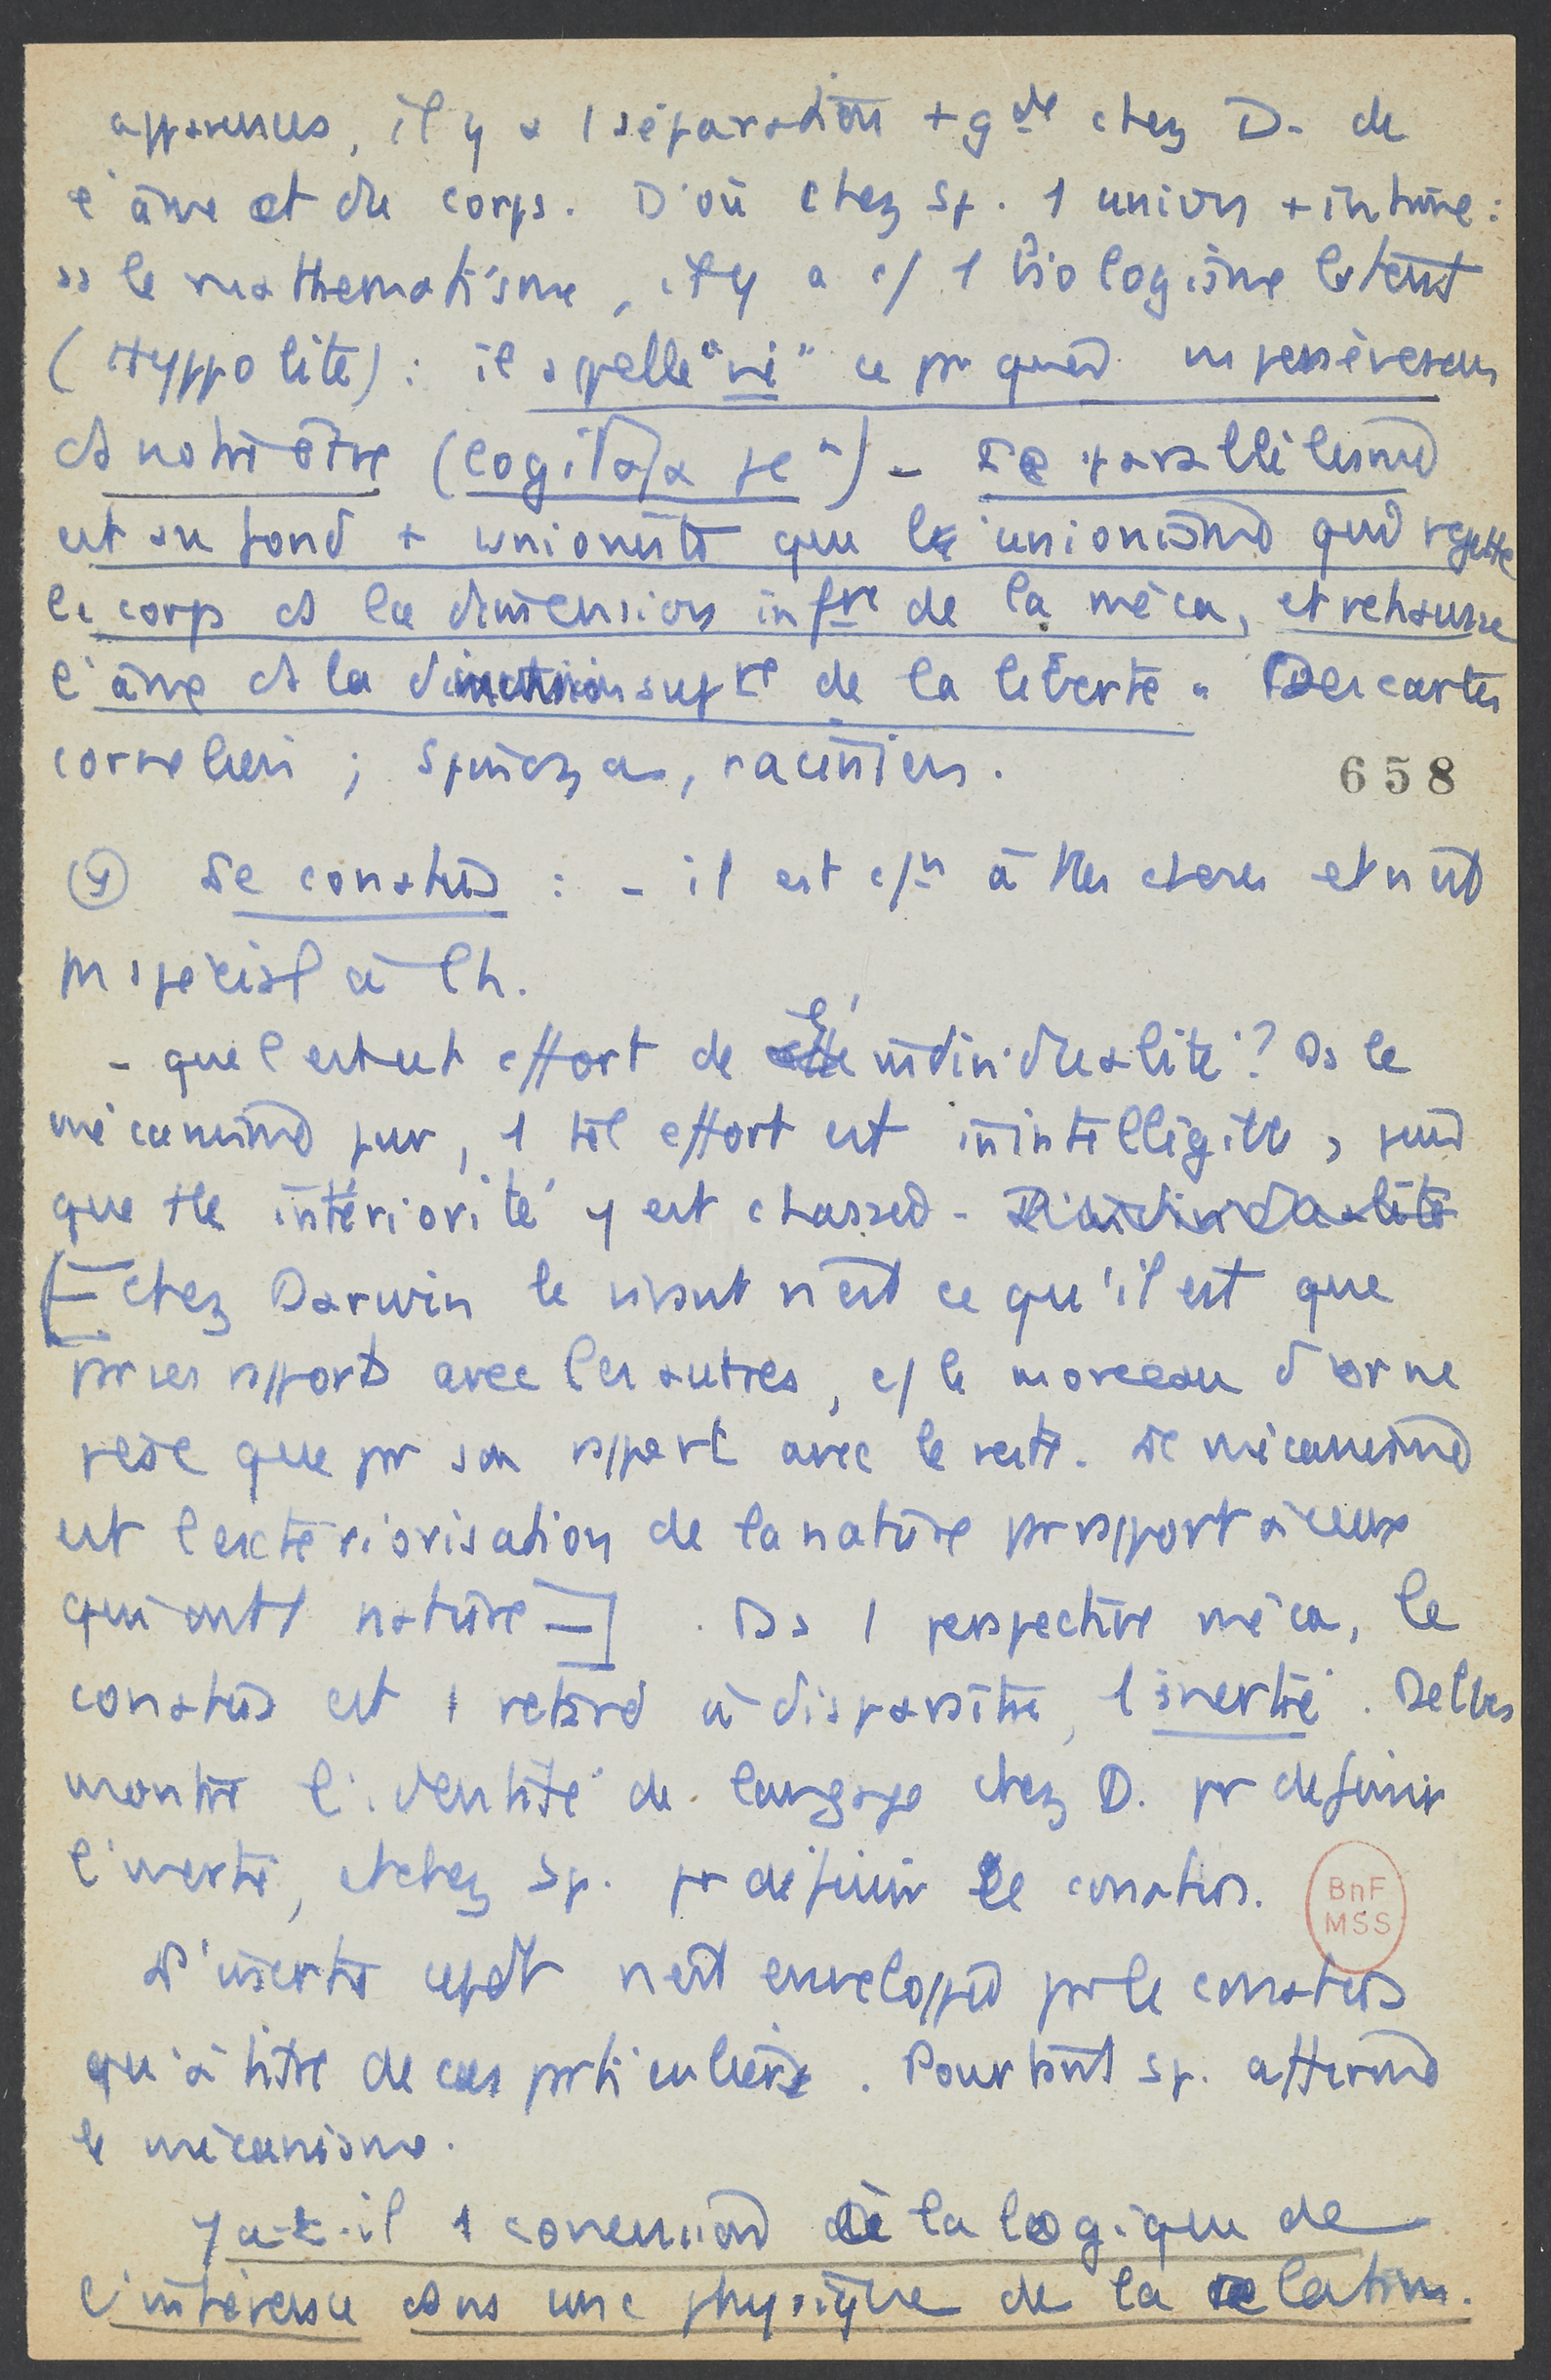 apparences, il y a 1 séparation + gde chez D. de
l'âme et du corps. D'où chez Sp. 1 union + intime :
ds le mathematisme, il y a c/ 1 biologisme latent
(Hyppolite) : il appelle "vie" ce pr quoi ns persévérons
ds notre être (Cogitata
Le parallélisme
est au fond + unioniste que le unionisme qui rejette
le corps ds la dimension infre de la méca, et rehausse
l'âme ds la dimension supre de la liberté. Descartes
cornelien ; Spinoza, racinien.
658
Le conatus : - il est c/n à ttes choses et n'est
pas spécial à l'h.
- quel est cet effort de l'individualité ? Ds le
mécanisme pur, 1 tel effort est inintelligible, puis
que tte intériorité y est chassée. L'individualité
[- chez Darwin le vivant n'est ce qu'il est que
par ses rapports avec les autres, c/ le morceau d'or ne
pèse que pr son rapport avec le reste. Le mécanisme
est l'extériorisation de la nature par rapport à ceux
qui ont 1 nature -]. Ds 1 perspective méca, le
conatus est 1 retard à disparaître, 1 inertie. Delbos
montre l'identité de langage chez D. pr definir
l'inertie, et chez Sp. pr définir le conatus.
BnF
MSS
L'inertie cepdt n'est enveloppée par le conatus
qu'à titre de cas particulier. Pourtant Sp. affirme
le mécanisme.
Y a-t-il 1 conversion de la logique de
l'inhérence dans une physique de la relation.